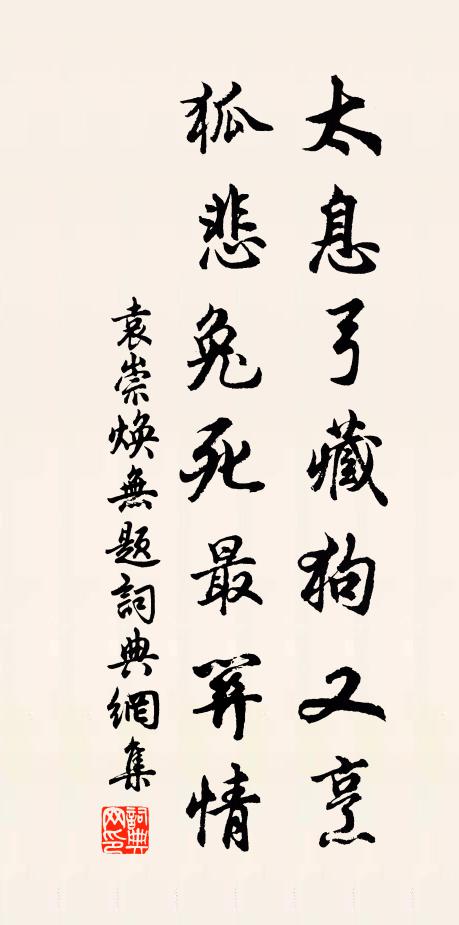 太息弓藏狗又烹
狐悲兔死最關情
袁崇煥無題詞典網集
詞典网印